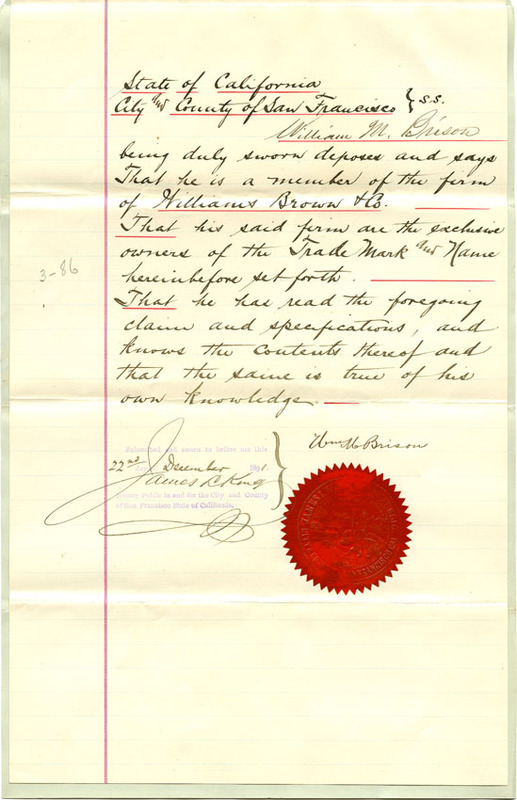 State of California
City and County of San Francisco } S.S.
William M. Brison
being duly sworn deposes and says
That he is a member of the firm
of Williams Brown & Co.
That his said firm are the exclusive
owners of the Trade Mark and Name
hereinbefore set forth.
That he has read the foregoing
claim and specifications, and
knows the contents thereof and
that the same is true of his
own knowledge.
3-86
Wm M Brison
Subscribed and sworn to before me this
22nd day December 1891.
James L. King
Notary Public in and for the City and County
of San Francisco State of California.